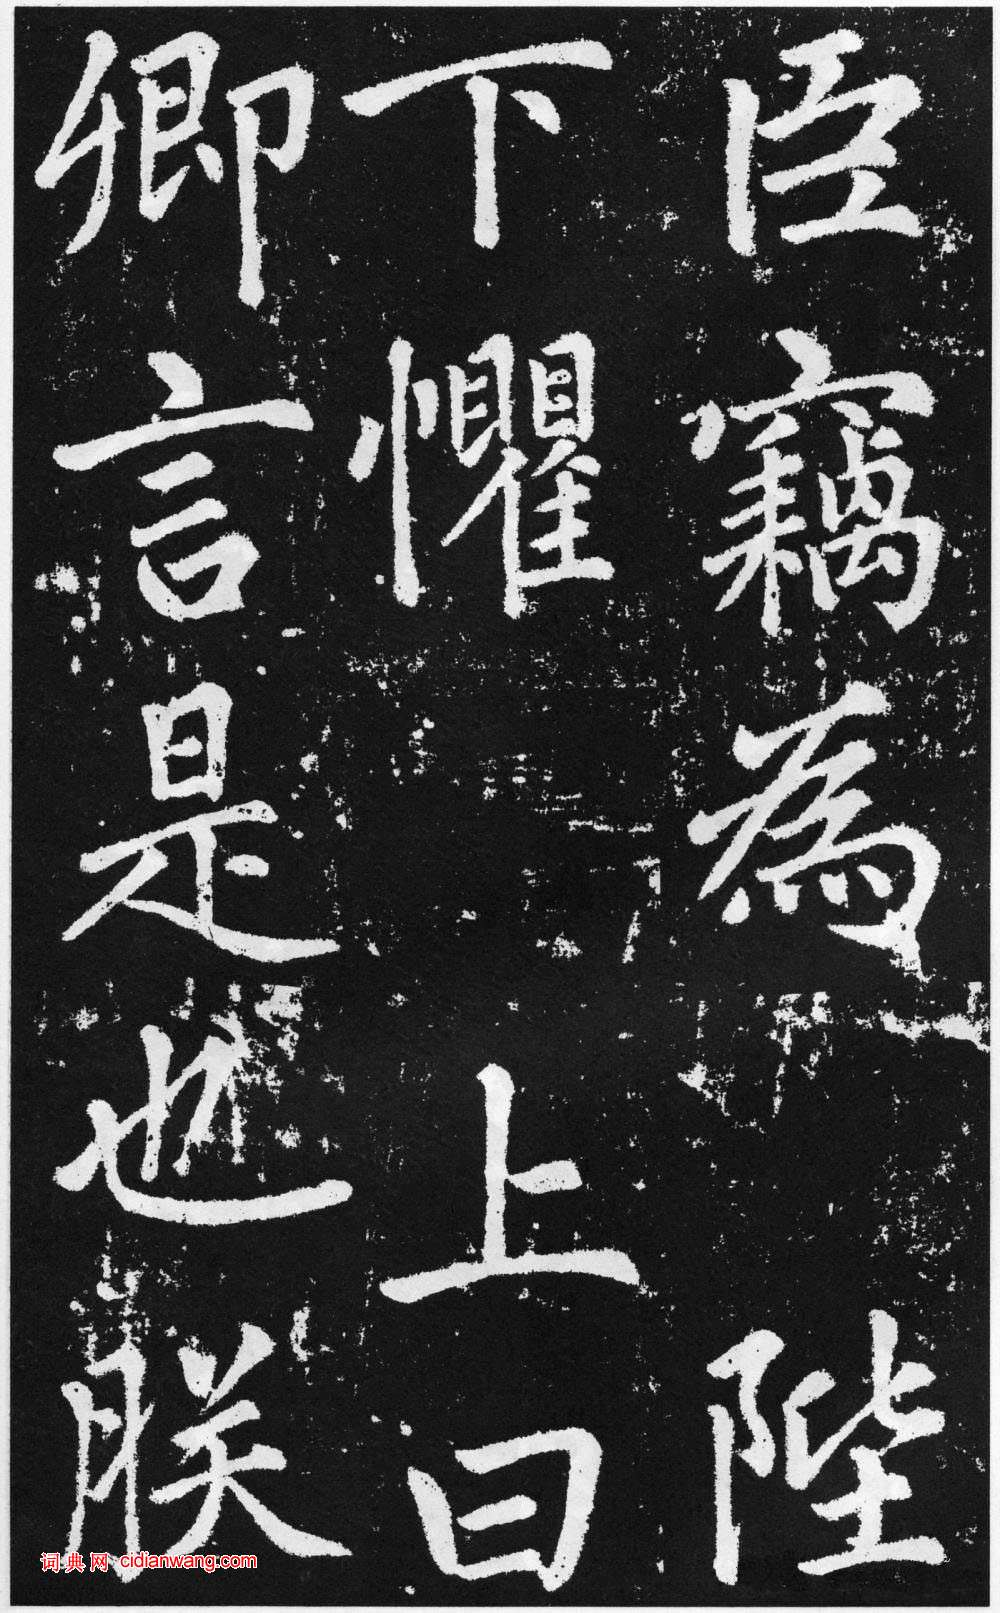 臣竊為陛
下懼上曰
卿言是也朕
词典网 cidianwang.com